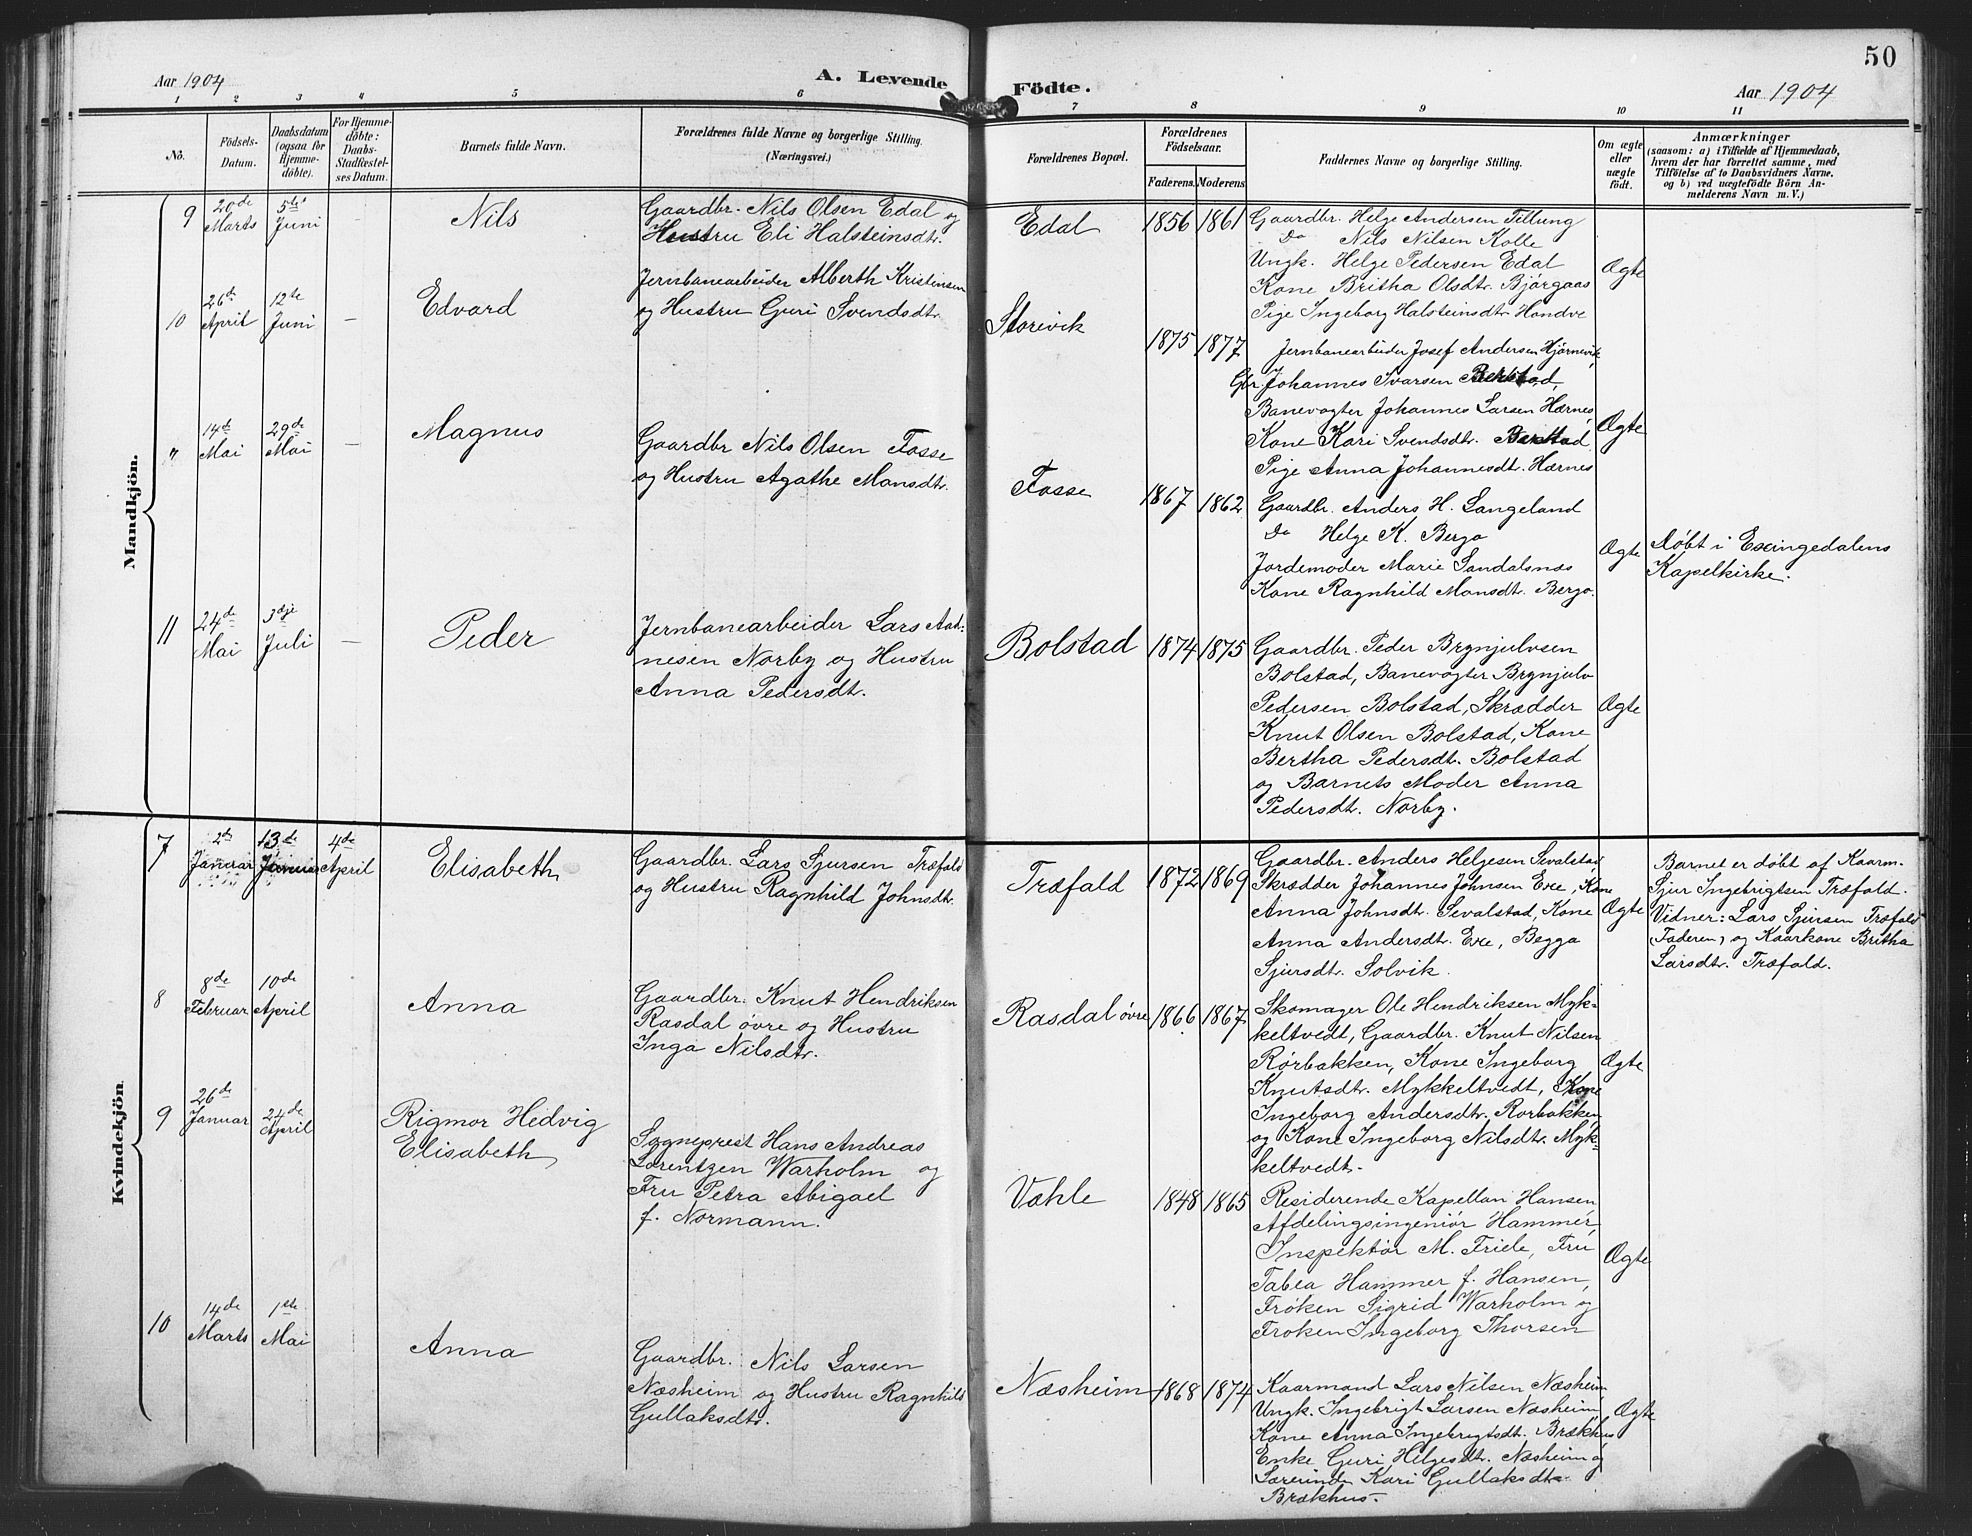 50
Aar 1904
A. Levende Födte.
Aar 1904
1 2 3 4 5 6 7 8 9 10 11
No.
Födsels-
Datum.
Daabsdatum
(ogsaa for
Hjemme-
döbte).
For Hjemme-
döbte:
Daabs-
Stadfæstel-
ses Datum.
Barnets fulde Navn.
Forældrenes fulde Navne og borgerlige Stilling.
(Næringsvei.)
Forældrenes Bopæl.
Forældrenes
Födselsaar.
Faderens. Moderens
Faddernes Navne og borgerlige Stilling.
Om ægte
eller
uægte
födt.
Anmærkninger
(saasom: a) i Tilfælde af Hjemmedaab,
hvem der har forrettet samme, med
Tilföielse af to Daabsvidners Navne,
og b) ved uægtefödte Börn An-
melderens Navn m. V.)
Mandkjön.
9
20de
Marts
5te
Juni
-
Nils
Gaardbr. Nils Olsen Edal og
Hustru Eli Halsteinsdtr.
Edal
1856 1861
Gaardbr. Helge Andersen Tillung
Do Nils Nilsen Kolle
Ungk. Helge Pedersen Edal
Kone Britha Olsdtr. Bjørgaas
Pige Ingeborg Halsteinsdtr. Hondve
Ægte
10
26de
April
12te
Juni
-
Edvard
Jernbanearbeider Alberth Kristensen
og Hustru Guri Svendsdtr.
Storevik
1875 1877
Jernbanearbeider Josef Andersen Hjørnevik,
Gbr. Johannes Ivarsen Bekstad,
Banevogter Johannes Larsen Hærnes
Kone Kari Svendsdtr.
Pige Anna Johannesdt. Hærnes
Ægte
"
14de
Mai
29de
Mai
-
Magnus
Gaardbr Nils Olsen Fosse
og Hustru Agathe Monsdtr.
Fosse
1867 1862
Gaardbr. Anders H. Langeland
Do Helge K. Bergo
Jordemoder Marie Sandalsnæs
Kone Ragnhild Monsdtr. Bergo.
Ægte
Døbt i Exingedalens
Kapelkirke.
11
24de
Mai
3dje
Juli
-
Peder
Jernbanearbeider Lars Aad-
nesen Norby og Hustru
Anna Pedersdt.
Bolstad
1874 1875
Gaardbr. Peder Brynjulvsen
Bolstad, Banevogter Brynjulv
Pedersen Bolstad, Skrædder
Knut Olsen Bolstad, Kone
Bertha Pedersdt. Bolstad
og Barnets Moder Anna
Pedersdt. Norby.
Ægte
Kvindekjön
7
2de
Januar
13de
Januar
4de
April
Elisabeth
Gaardbr. Lars Sjursen Træfald
og Hustru Ragnhild Johnsdtr.
Træfald
1872 1869
Gaardbr. Anders Helgesen Sevalstad,
Skrædder Johannes Johnsen Exe, Kone
Anna Johnsdt. Sevalstad, Kone
Anna Andersdt. Exe, Begga
Sjursdt. Solvik.
Ægte
Barnet er døbt af Kaarm.
Sjur Ingebrigtsen Træfald.
Vidner: Lars Sjursen Træfald
(Faderen) og Kaarkone Britha
Larsdtr. Træfald.
8
8de
Februar
10de
April
Anna
Gaardbr. Knut Hendriksen
Rasdal øvre og Hustru
Inga Nilsdtr.
Rasdal øvre
1866 1867
Skomager Ole Hendriksen Myk-
keltvedt, Gaardbr. Knut Nilsen
Rørbakken, Kone Ingeborg
Knutsdtr. Mykkeltvedt, Kone
Ingeborg Andersdtr. Rørbakken
og Kone Ingeborg Nilsdtr. Myk-
keltvedt.
Ægte
9
26de
Januar
24de
April
Rigmor Hedvig
Elisabeth
Sogneprest Hans Andreas
Lorentzen Warholm og
Fru Petra Abigael
f. Normann.
Vohle
1848 1865
Residerende Kapellan Hansen,
Afdelingsingeniør Hammer,
Inspektør M. Friele, Fru
Tabea Hammer f. Hansen,
Frøken Sigrid Warholm og
Frøken Ingeborg Thorsen
Ægte
10
14de
Marts
1ste
Mai
Anna
Gaardbr. Nils Larsen
Næsheim og Hustru Ragnhild
Gullaksdtr.
Næsheim
1868 1874
Kaarmand Lars Nilsen Næsheim
Ungk. Ingebrigt Larsen Næsheim
Kone Anna Ingebrigtsdt. Brækhus
Enke Guri Helgesdt. Næsheim og
Lærerinde Kari Gullaksdt.
Brækhus.
Ægte